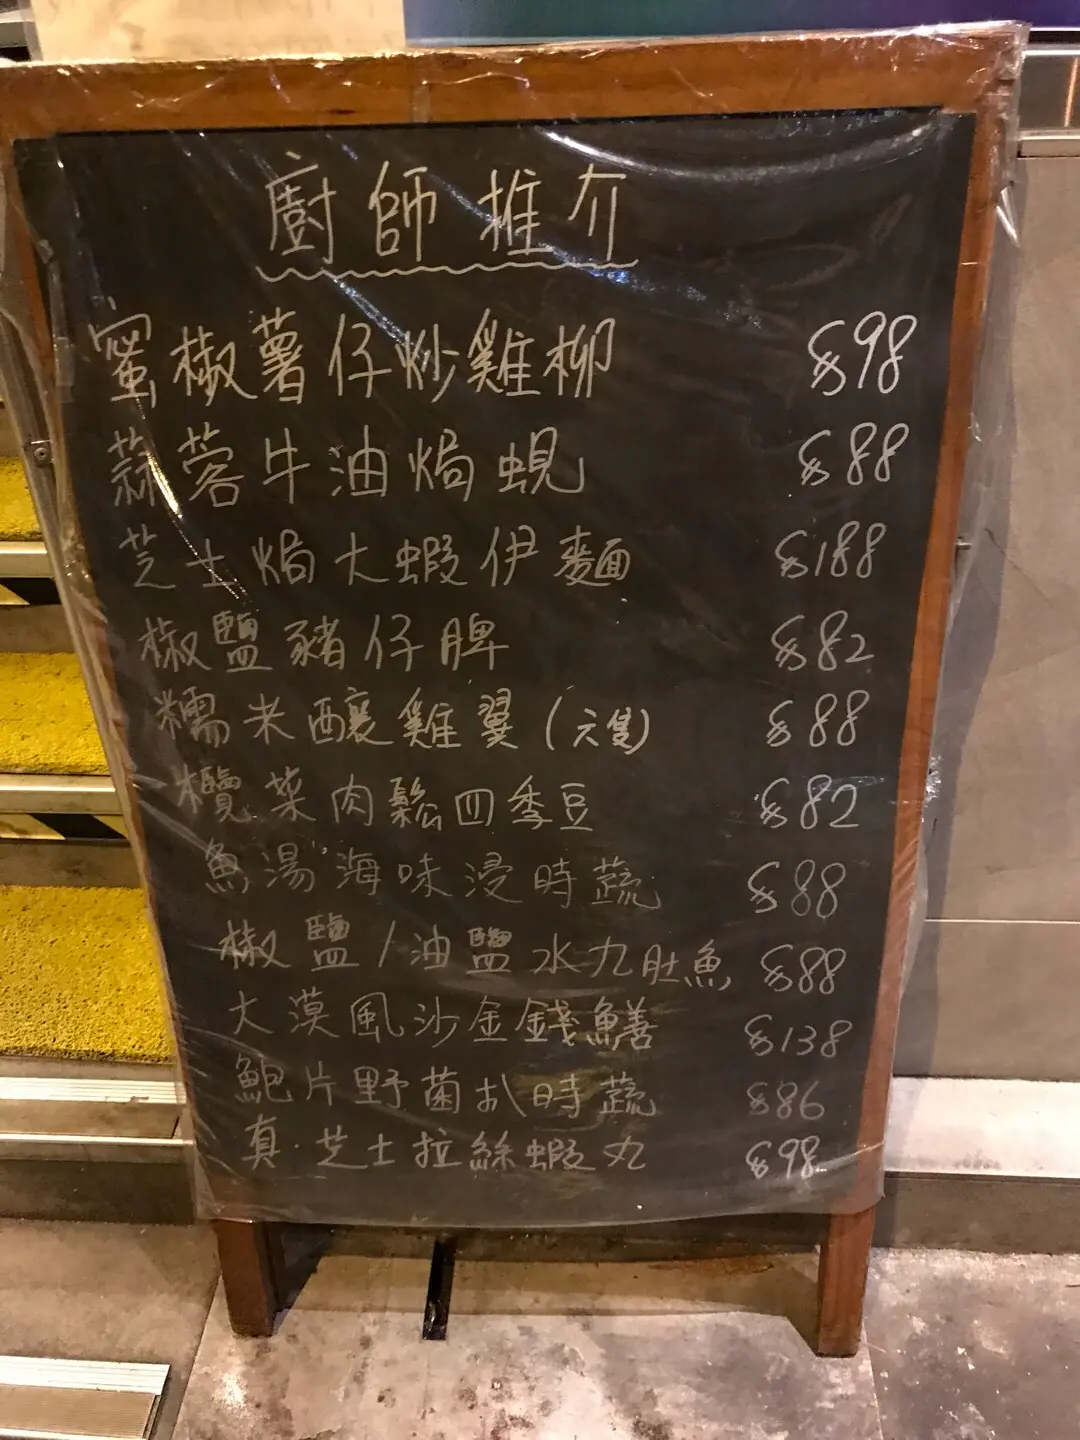 廚師推介
蜜椒薯仔炒雞柳 $98
蒜蓉牛油焗蜆 $88
芝士焗大蝦伊麵 $188
椒鹽豬仔脾 $82
糯米釀雞翼(六隻) $88
欖菜肉鬆四季豆 $82
魚湯海味浸時蔬 $88
椒鹽/油鹽水九肚魚 $88
大漠風沙金錢鱔 $138
鮑片野菌扒時蔬 $86
真·芝士拉絲蝦丸 $98